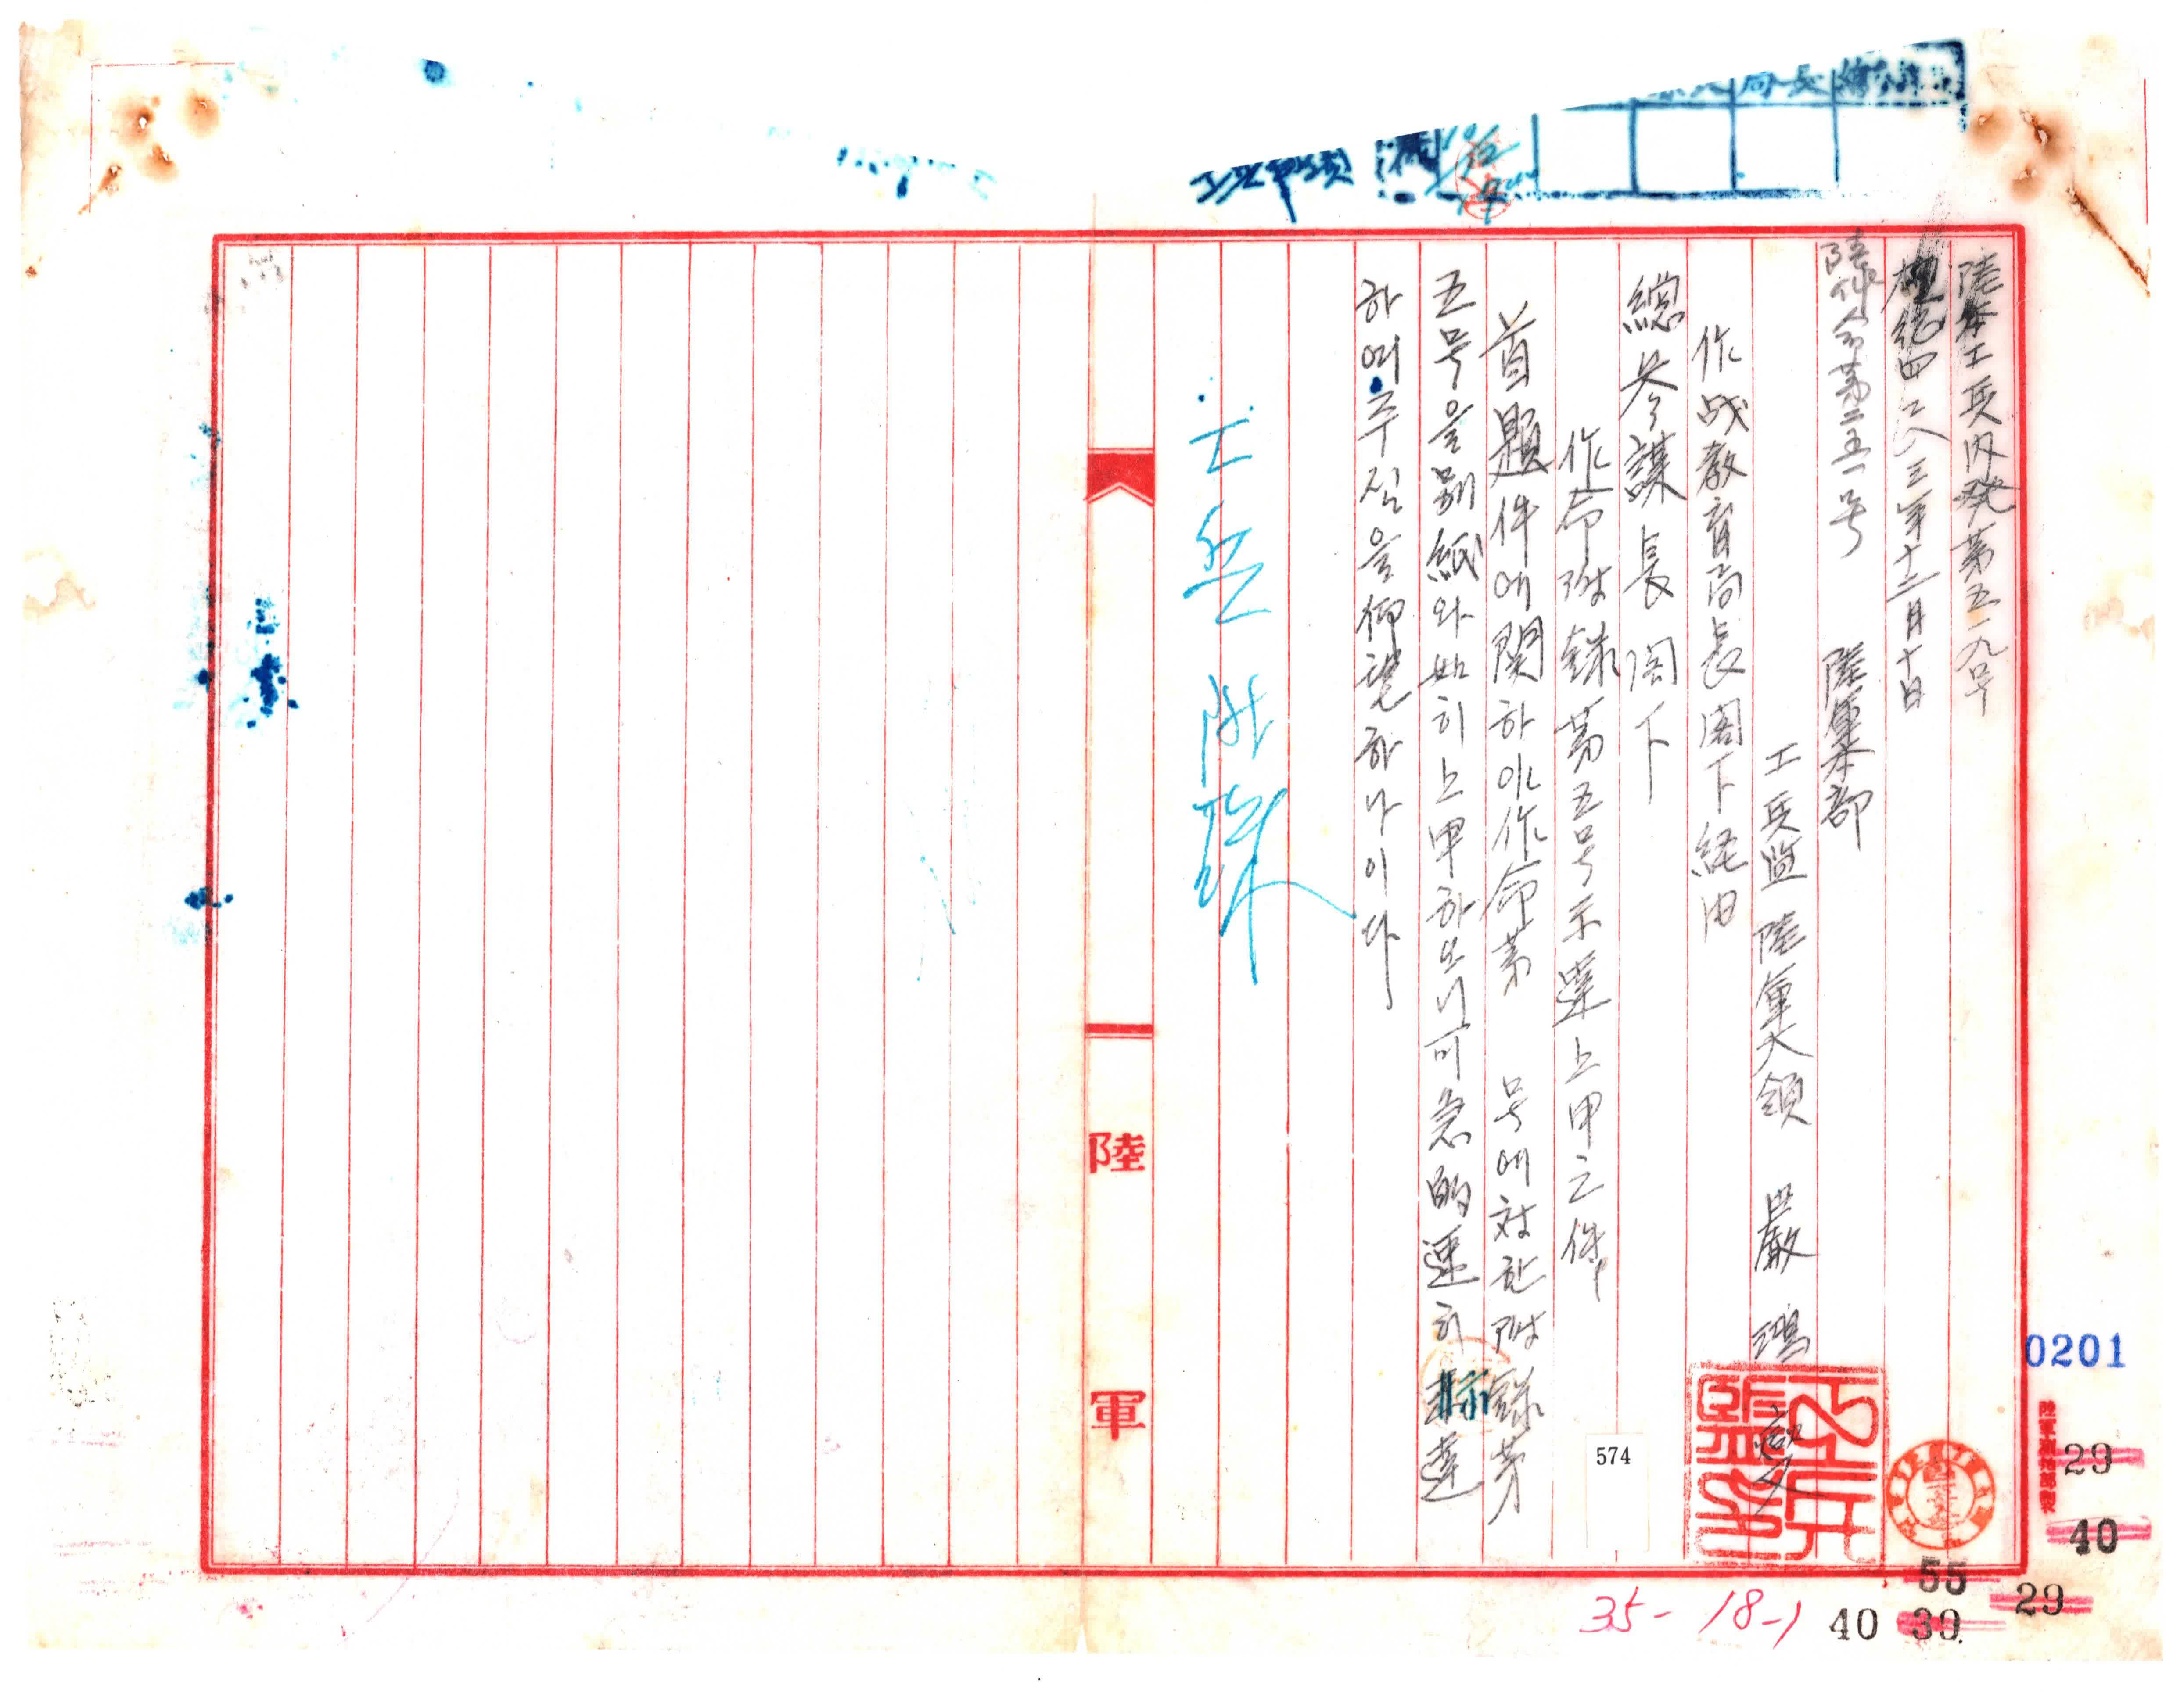 陸本工兵内発第五一九号
檀紀四二八三年十二月十日
陸作命第二五一号 陸軍本部
工兵監 陸軍大領 嚴鴻燮
作战教育局長閣下経由
總参謀長閣下
作命附錄第五号示達上申之件
首題件에関하야作命第 号에対한附錄第
五号을別紙와如히上申하오니可急的速히示達
하여주심을仰望하나이다
陸軍
0201
574
29
40
55
29
40 39
35-18-1